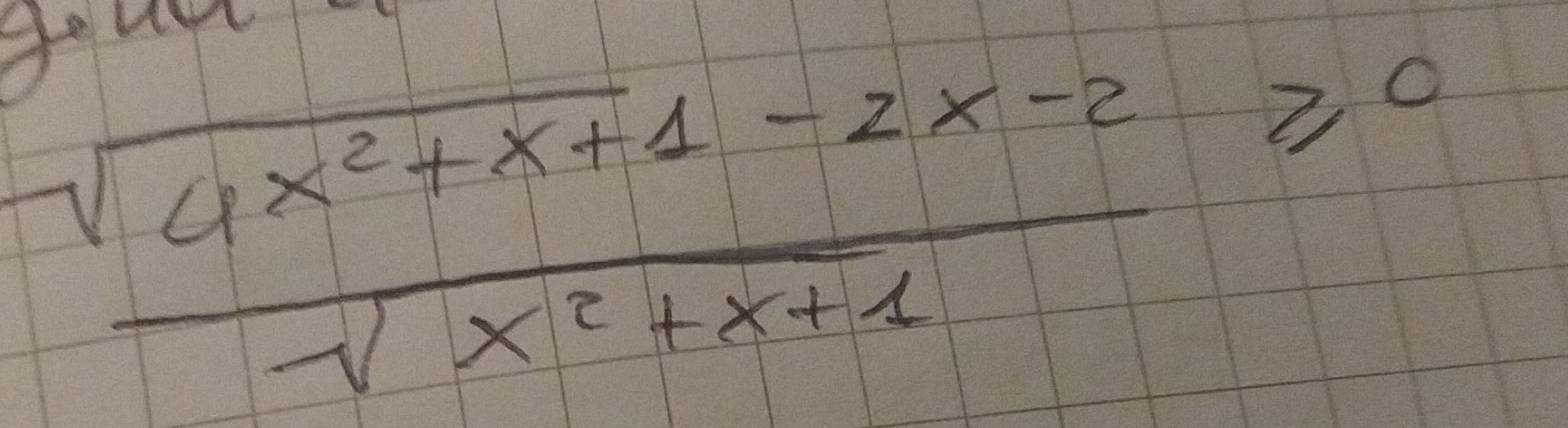 √4x² + x + 1 - 2x - 2 ⩾ 0
√x² + x + 1